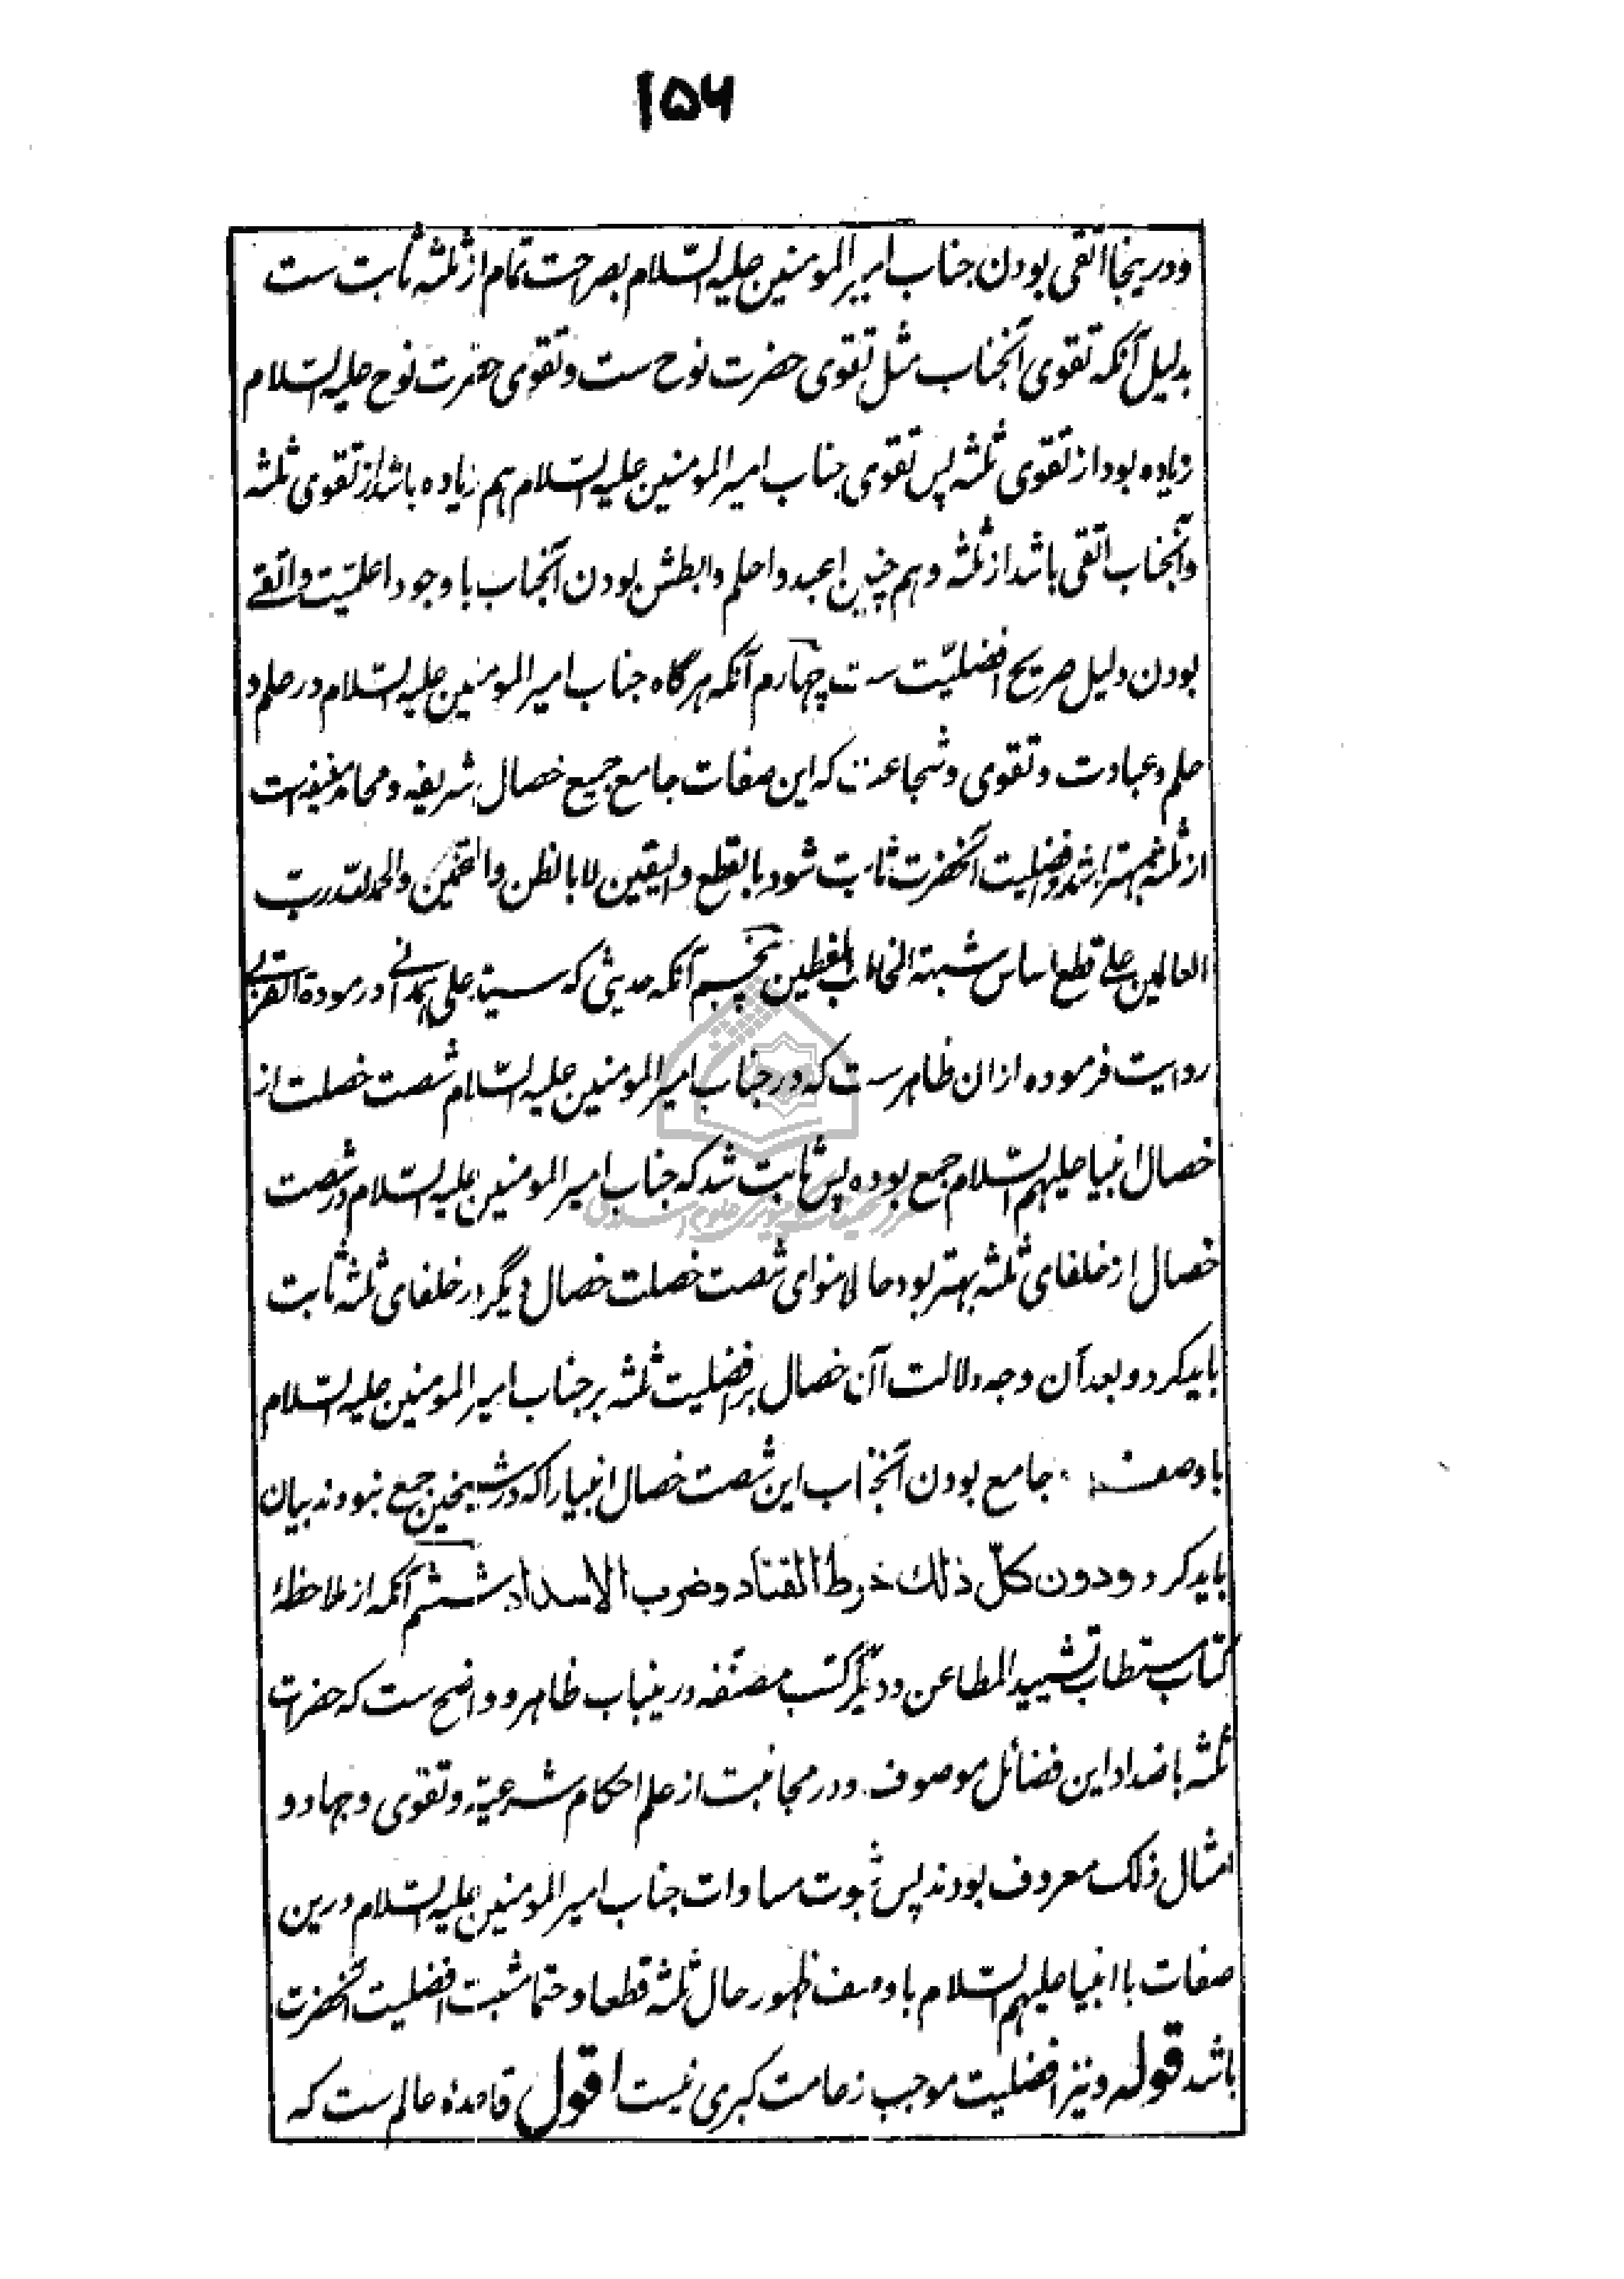 ۱۵۶
ودرینجا اتقی بودن جناب امیر المومنین علیه السّلام بصراحت تمام از ثلثه ثابت ست
بدلیل آنکه تقوی آنجناب مثل تقوی حضرت نوح ست و تقوی حضرت نوح علیه السّلام
زیاده بود از تقوی ثلثه پس تقوی جناب امیر المومنین علیه السّلام هم زیاده باشد از تقوی ثلثه
وآنجناب اتقی باشد از ثلثه و هم چنین اعبد و احلم و ابطش بودن آنجناب با وجود اعلمیّت و اتقے
بودن دلیل صریح افضلیّت ست چهارم آنکه هرگاه جناب امیر المومنین علیه السّلام در علم و
حلم و عبادت و تقوی و شجاعت که این صفات جامع جمیع خصال شریفه و محامد منیفه است
از ثلثه بهتر باشد افضلیت آنحضرت ثابت شود بالقطع و الیقین لا بالظن و التخمین و الحمد للّه ربّ
العالمین علے قطع اساس شبهة المخالب المغطین پنجم آنکه حدیثی که سید علی همدانے در مودة القربے
روایت فرموده ازان ظاهر ست که در جناب امیر المومنین علیه السّلام شصت خصلت از
خصال انبیا علیهم السّلام جمع بوده پس ثابت شد که جناب امیر المومنین علیه السّلام در شصت
خصال از خلفای ثلثه بهتر بود حالا سوای شصت خصلت خصال دیگر در خلفای ثلثه ثابت
باید کرد و بعد آن وجه دلالت آن خصال بر افضلیت ثلثه بر جناب امیر المومنین علیه السّلام
با وصف جامع بودن آنجناب این شصت خصال انبیا را که در شیخین جمع نبودند بیان
باید کرد و دون کلّ ذلك خرط القتاد و ضرب الاسداد ششم آنکه از ملاحظهٔ
کتاب مستطاب تشیید المطاعن و دیگر کتب مصنّفه درینباب ظاهر و واضح ست که حضرات
ثلثه باضداد این فضائل موصوف و در مجانبت از علم احکام شرعیّه و تقوی و جهاد و
امثال ذلک معروف بودند پس ثبوت مساوات جناب امیر المومنین علیه السّلام درین
صفات با انبیا علیهم السّلام با وصف ظهور حال ثلثه قطعا و حتما مثبت افضلیت آنحضرت
باشد قوله و نیز افضلیت موجب زعامت کبری نیست اقول قاعدهٔ عالم ست که